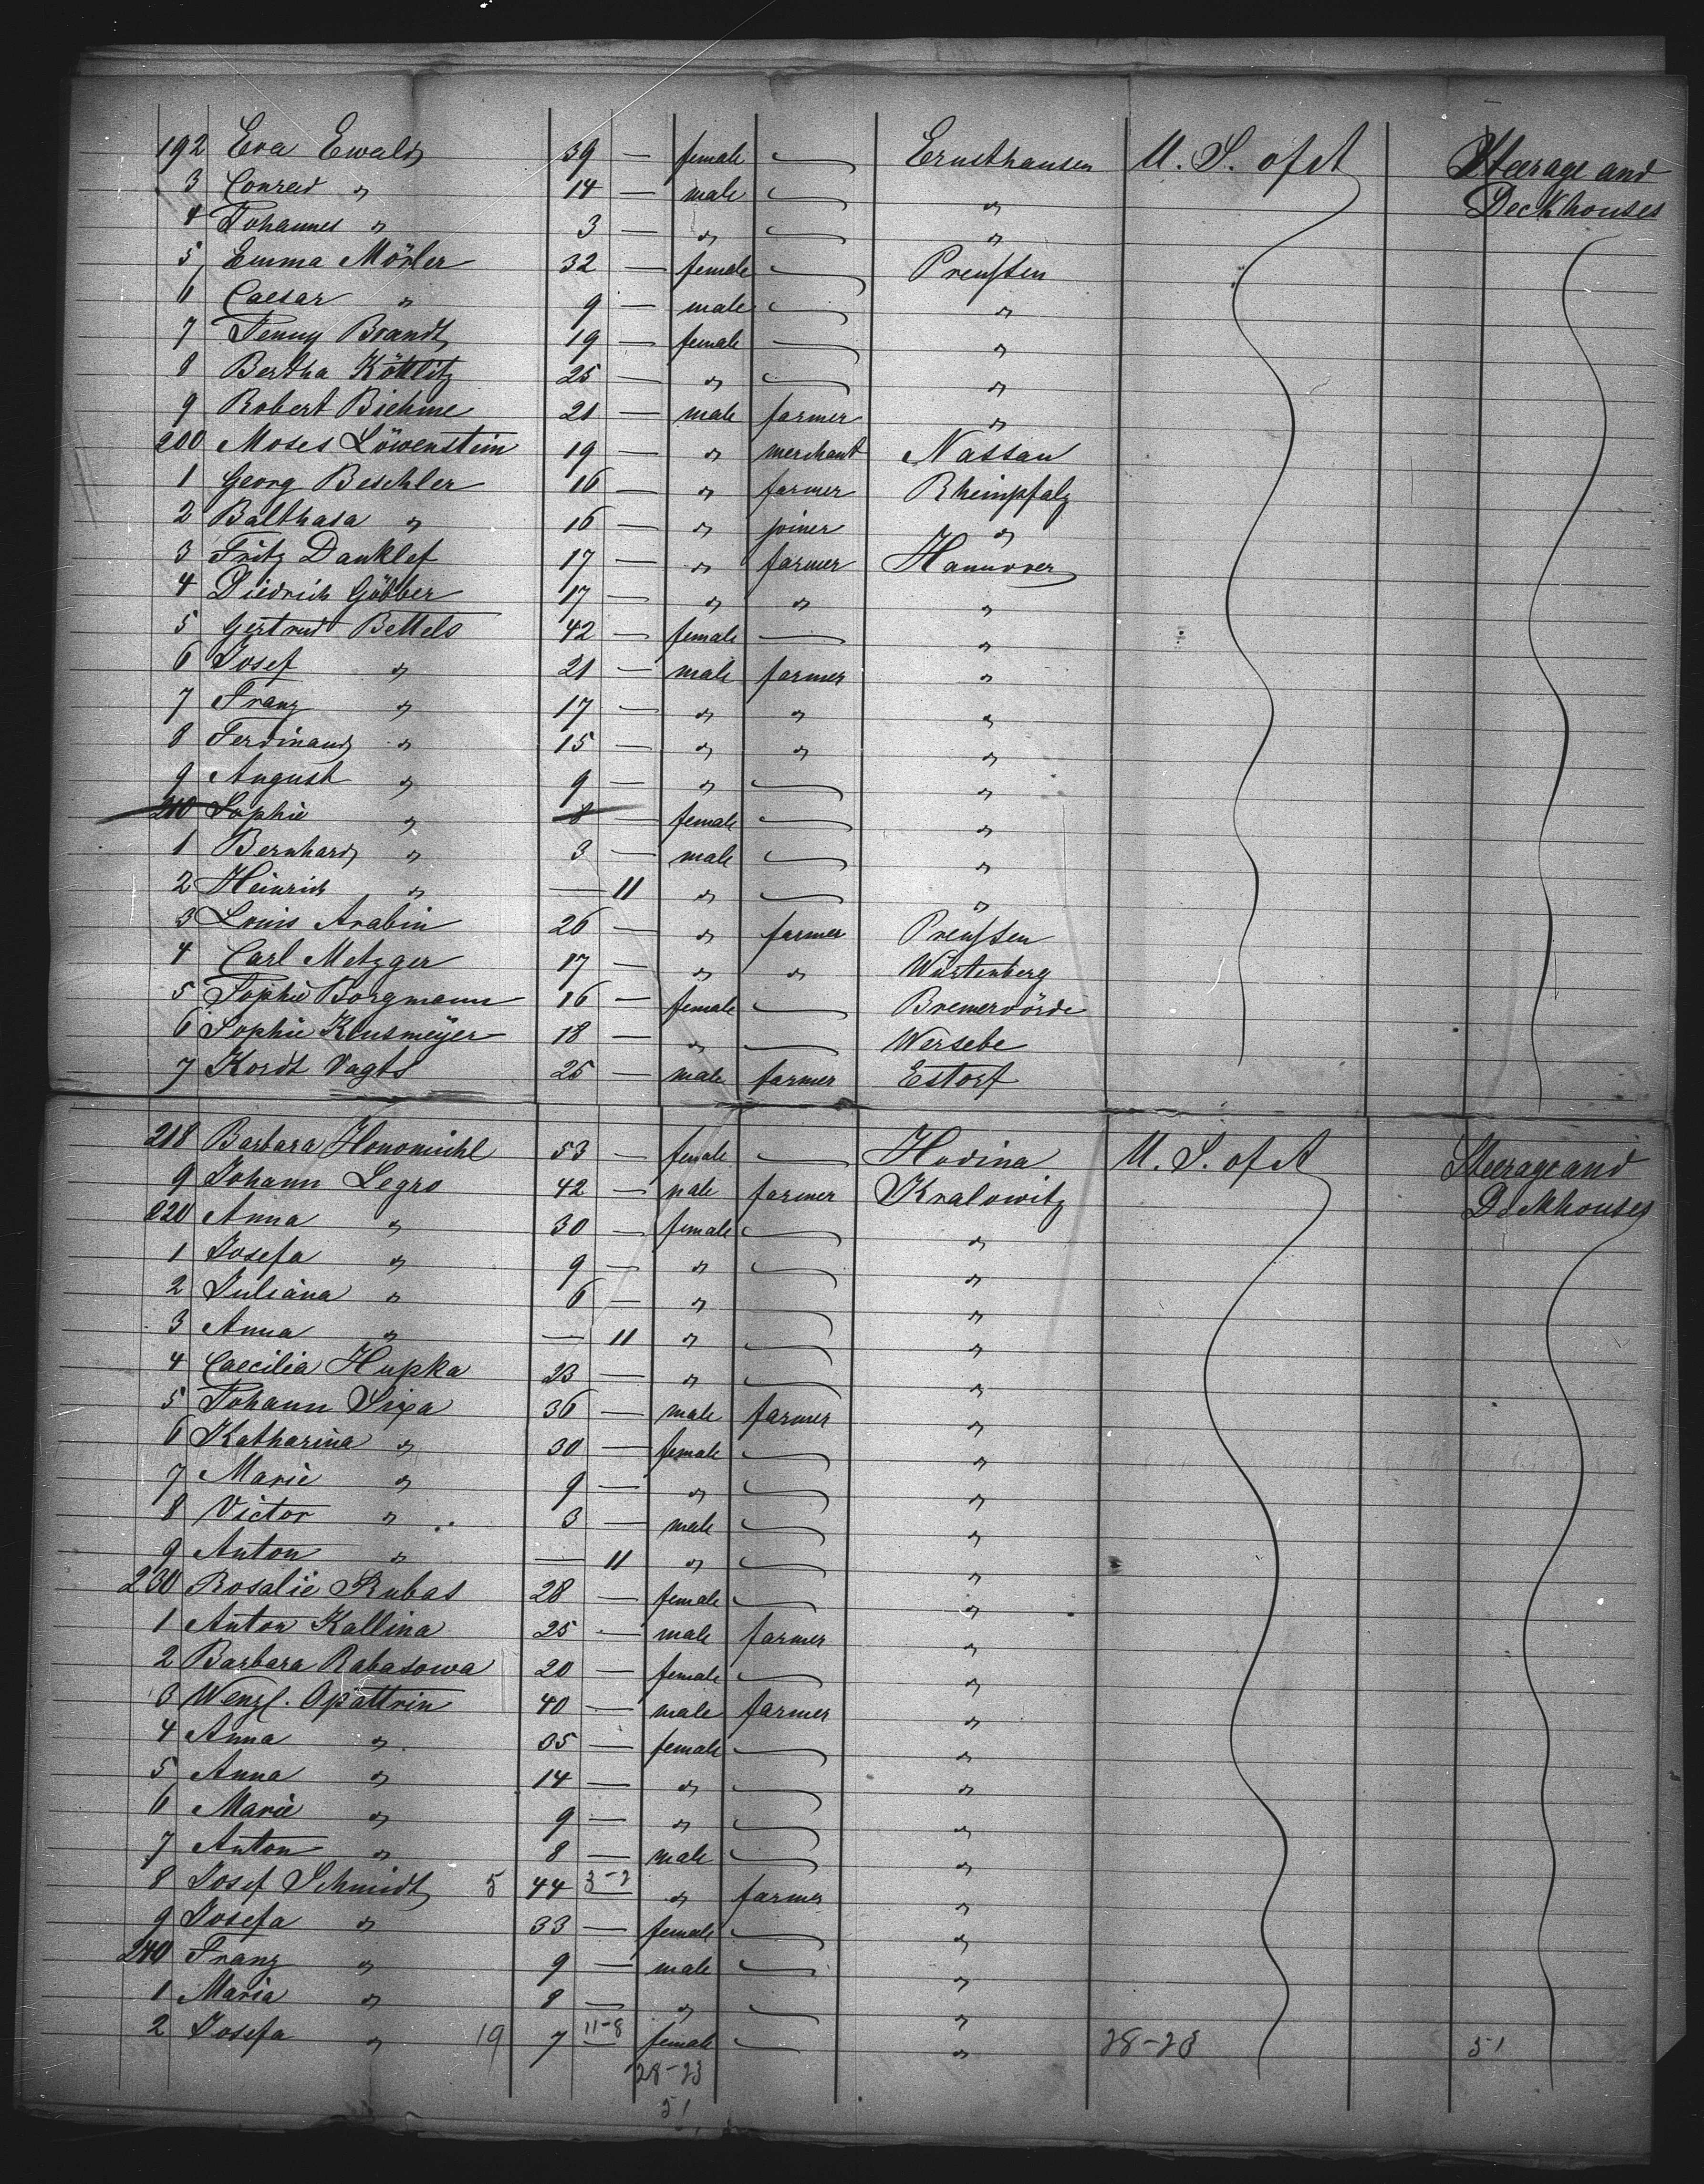 192 Eva Ewald 39 — female — Ernsthausen U. S. of A Steerage and
3 Conrad " 14 — male — " Deckhouses
4 Johannes " 3 — " — "
5 Emma Mörler 32 — female — Preußen
6 Caesar " 9 — male — "
7 Jenny Brandt 19 — female — "
8 Bertha Köhlitz 25 — " — "
9 Robert Biehme 21 — male farmer "
200 Moses Löwenstein 19 — " merchant Nassau
1 Georg Beschler 16 — " farmer Rheinpfalz
2 Balthasa " 16 — " joiner "
3 Fritz Danklef 17 — " farmer Hannover
4 Diedrich Göbber 17 — " " "
5 Gertrud Bettels 42 — female — "
6 Josef " 21 — male farmer "
7 Franz " 17 — " " "
8 Ferdinand " 15 — " " "
9 August " 9 — " — "
210 Sophie " 8 — female — "
1 Bernhard " 3 — male — "
2 Heinrich " — 11 " — "
3 Louis Arabin 26 — " farmer Preußen
4 Carl Metzger 17 — " " Würtenberg
5 Sophie Borgmann 16 — female — Bremervörde
6 Sophie Kensmeÿer 18 — " — Wersebe
7 Kordt Vagts 25 — male farmer Estorf
218 Barbara Honomichl 53 — female — Hodina U. S. of A Steerage and
9 Johann Legro 42 — male farmer Kralowitz Deckhouses
220 Anna " 30 — female — "
1 Josefa " 9 — " — "
2 Juliana " 6 — " — "
3 Anna " — 11 " — "
4 Caecilia Hupka 23 — " — "
5 Johann Sixa 36 — male farmer "
6 Katharina " 30 — female — "
7 Marie " 9 — " — "
8 Victor " 3 — male — "
9 Anton " — 11 " — "
230 Rosalie Rubas 28 — female — "
1 Anton Kallina 25 — male farmer "
2 Barbara Rabasowa 20 — female — "
3 Wenzl. Opattrin 40 — male farmer "
4 Anna " 35 — female — "
5 Anna " 14 — " — "
6 Marie " 9 — " — "
7 Anton " 8 — male — "
8 Josef Schmidt 5 44 3-2 — " farmer "
9 Josefa " 33 — female — "
240 Franz " 9 — male — "
1 Maria " 8 — " — "
2 Josefa " 19 7 11-8 — female — " 28-23 51
28-23
51